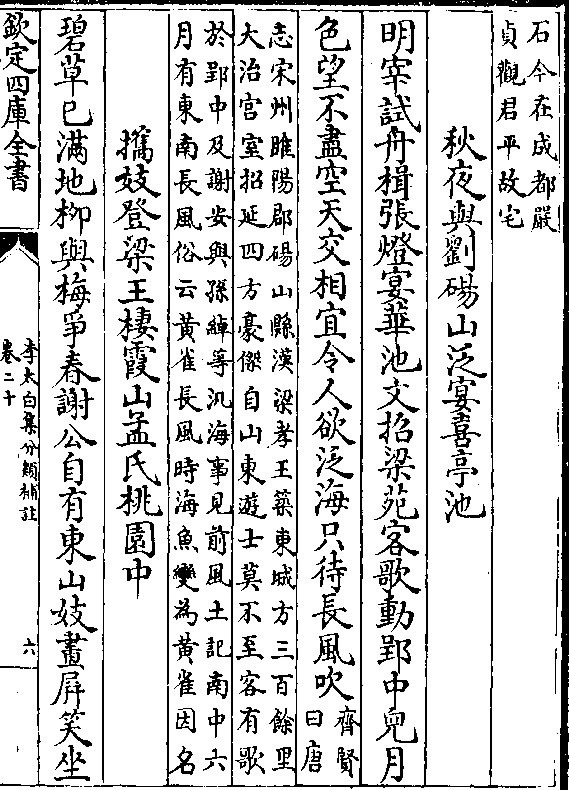 石今在成都嚴
貞觀君平故宅
秋夜與劉碭山泛宴喜亭池
明宰試舟楫張燈宴華池文招梁苑客歌動郢中兒月
色望不盡空天交相宜令人欲泛海只待長風吹
齊賢
曰唐
志宋州睢陽郡碭山縣漢梁孝王築東城方三百餘里
大治宫室招延四方豪傑自山東遊士莫不至客有歌
於郢中及謝安與孫綽等汎海事見前風土記南中六
月有東南長風俗云黄雀長風時海魚變為黄雀因名
攜妓登梁王棲霞山孟氏桃園中
碧草已滿地栁與梅爭春謝公自有東山妓畫屛笑坐
欽定四庫全書
李太白集分類補註
卷二十
六